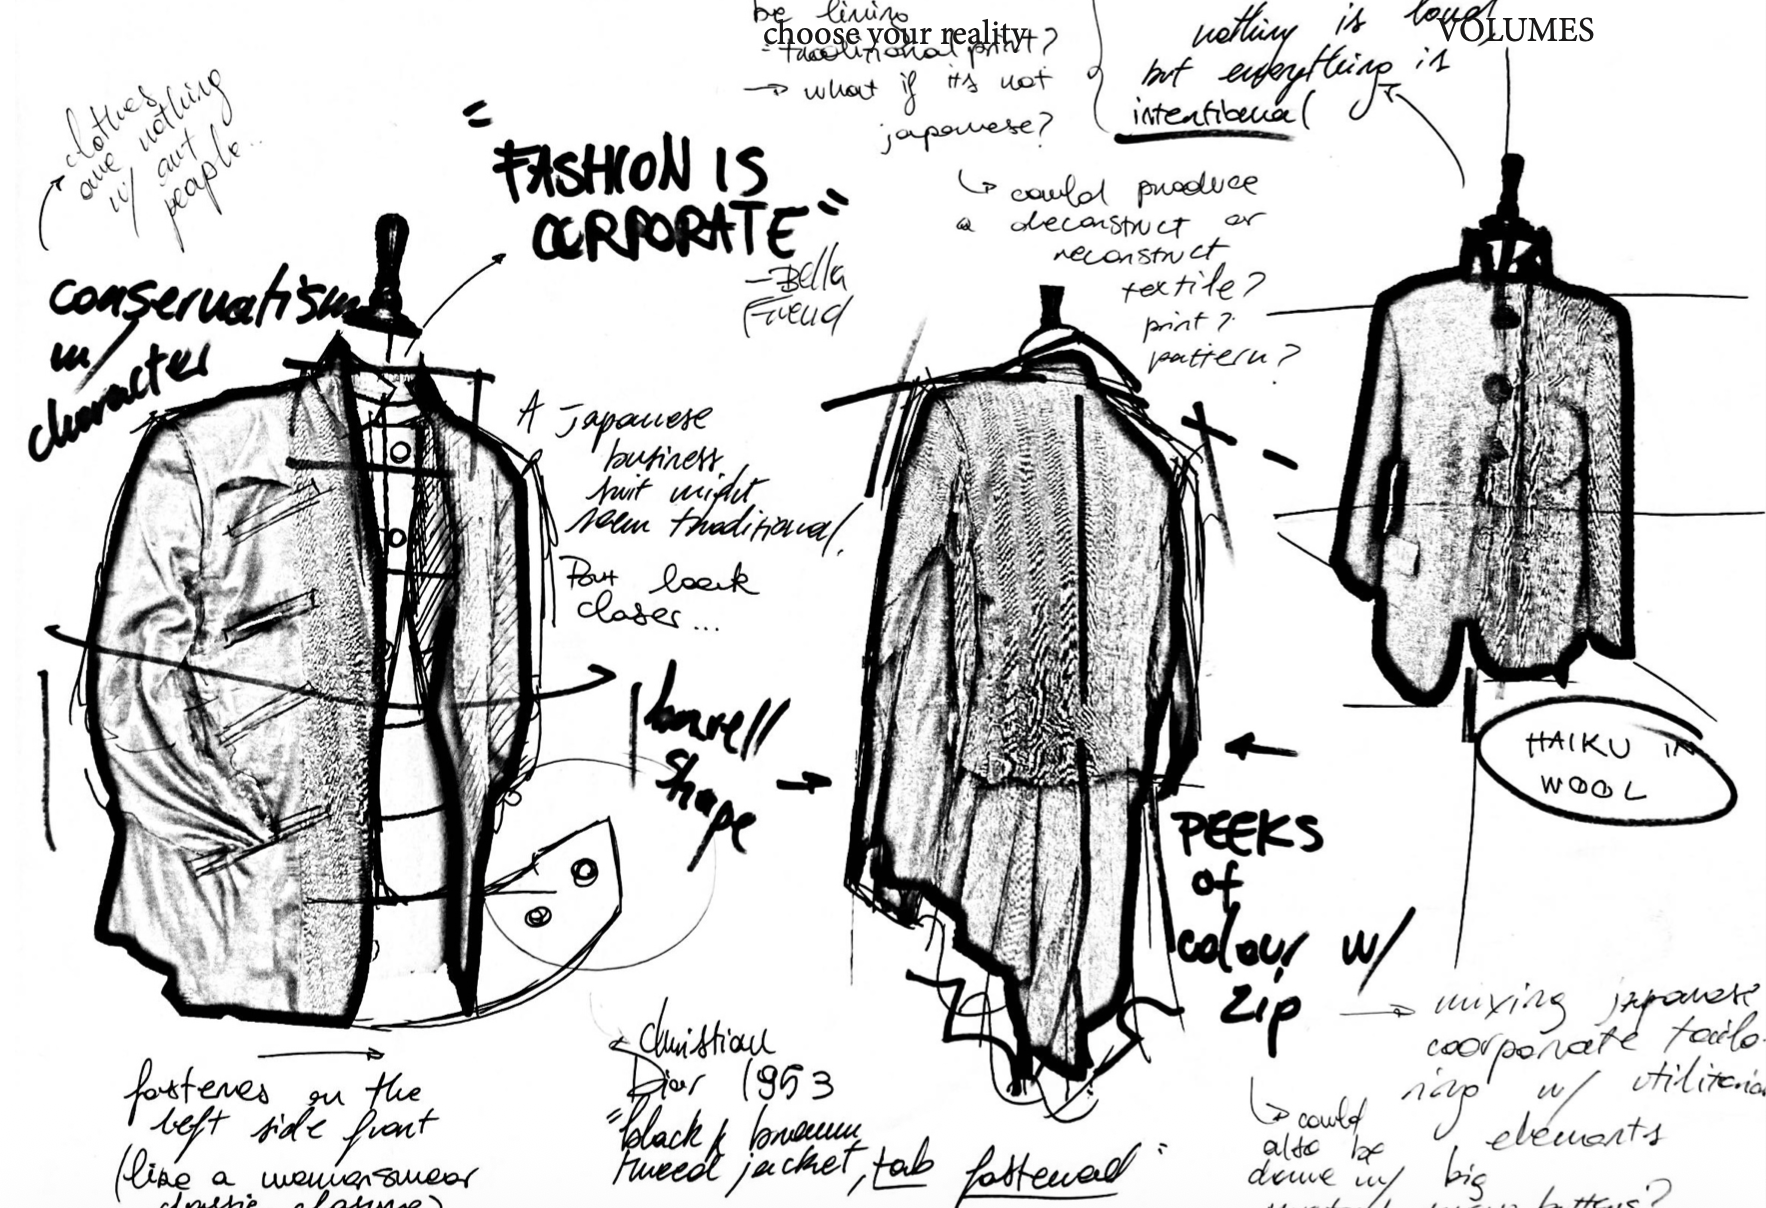 be lining
choose your reality
traditional print?
→ what if it's not
japanese?
nothing is loud
VOLUMES
but everything is
intentional
clothes
are nothing
w/ out
people..
"FASHION IS
CORPORATE"
- Bella
Freud
↳ could produce
a deconstruct or
reconstruct
textile?
print?
pattern?
conservatism
w/
character
A japanese
business
suit might
seem traditional.
But look
closer...
barell
shape
HAIKU IN
WOOL
PEEKS
of
colour w/
zip
→ mixing japanese
coorporate tailo-
ring w/ utilitarian
elements
↳ could
also be
done w/ big
buttons?
fastenes on the
left side front
(like a womenswear
classic closure)
Christian
Dior 1953
"black & brown
tweed jacket, tab fastened"